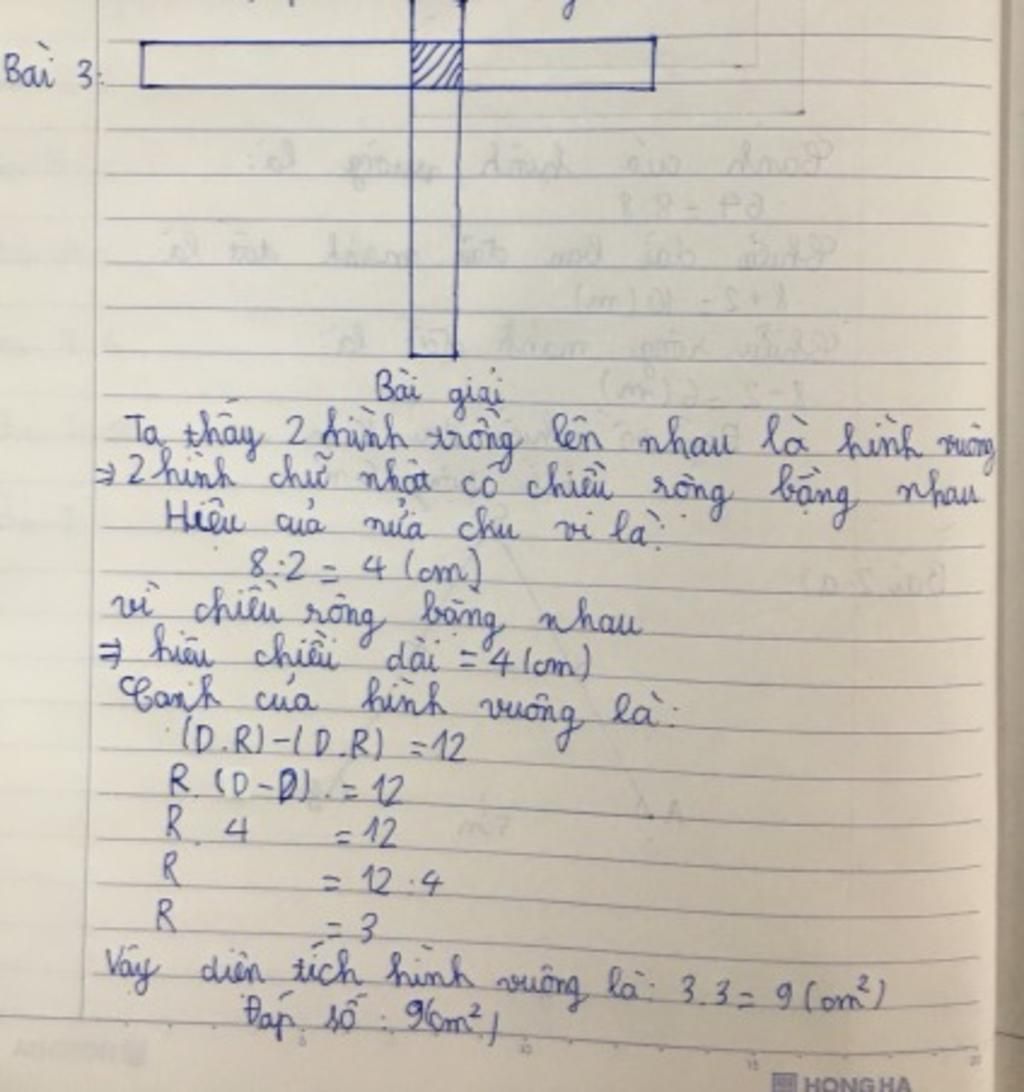 Bài 3:
Bài giải
Ta thấy 2 hình trồng lên nhau là hình vuông
⇒ 2 hình chữ nhật có chiều rộng bằng nhau
Hiệu của nửa chu vi là:
8:2 = 4 (cm)
vì chiều rộng bằng nhau
⇒ hiệu chiều dài = 4 (cm)
Cạnh của hình vuông là:
(D.R)-(D.R) = 12
R. (D-D) = 12
R . 4 = 12
R = 12 : 4
R = 3
Vậy diện tích hình vuông là: 3.3 = 9 (cm²)
Đáp số : 9(cm²)
HONG HA